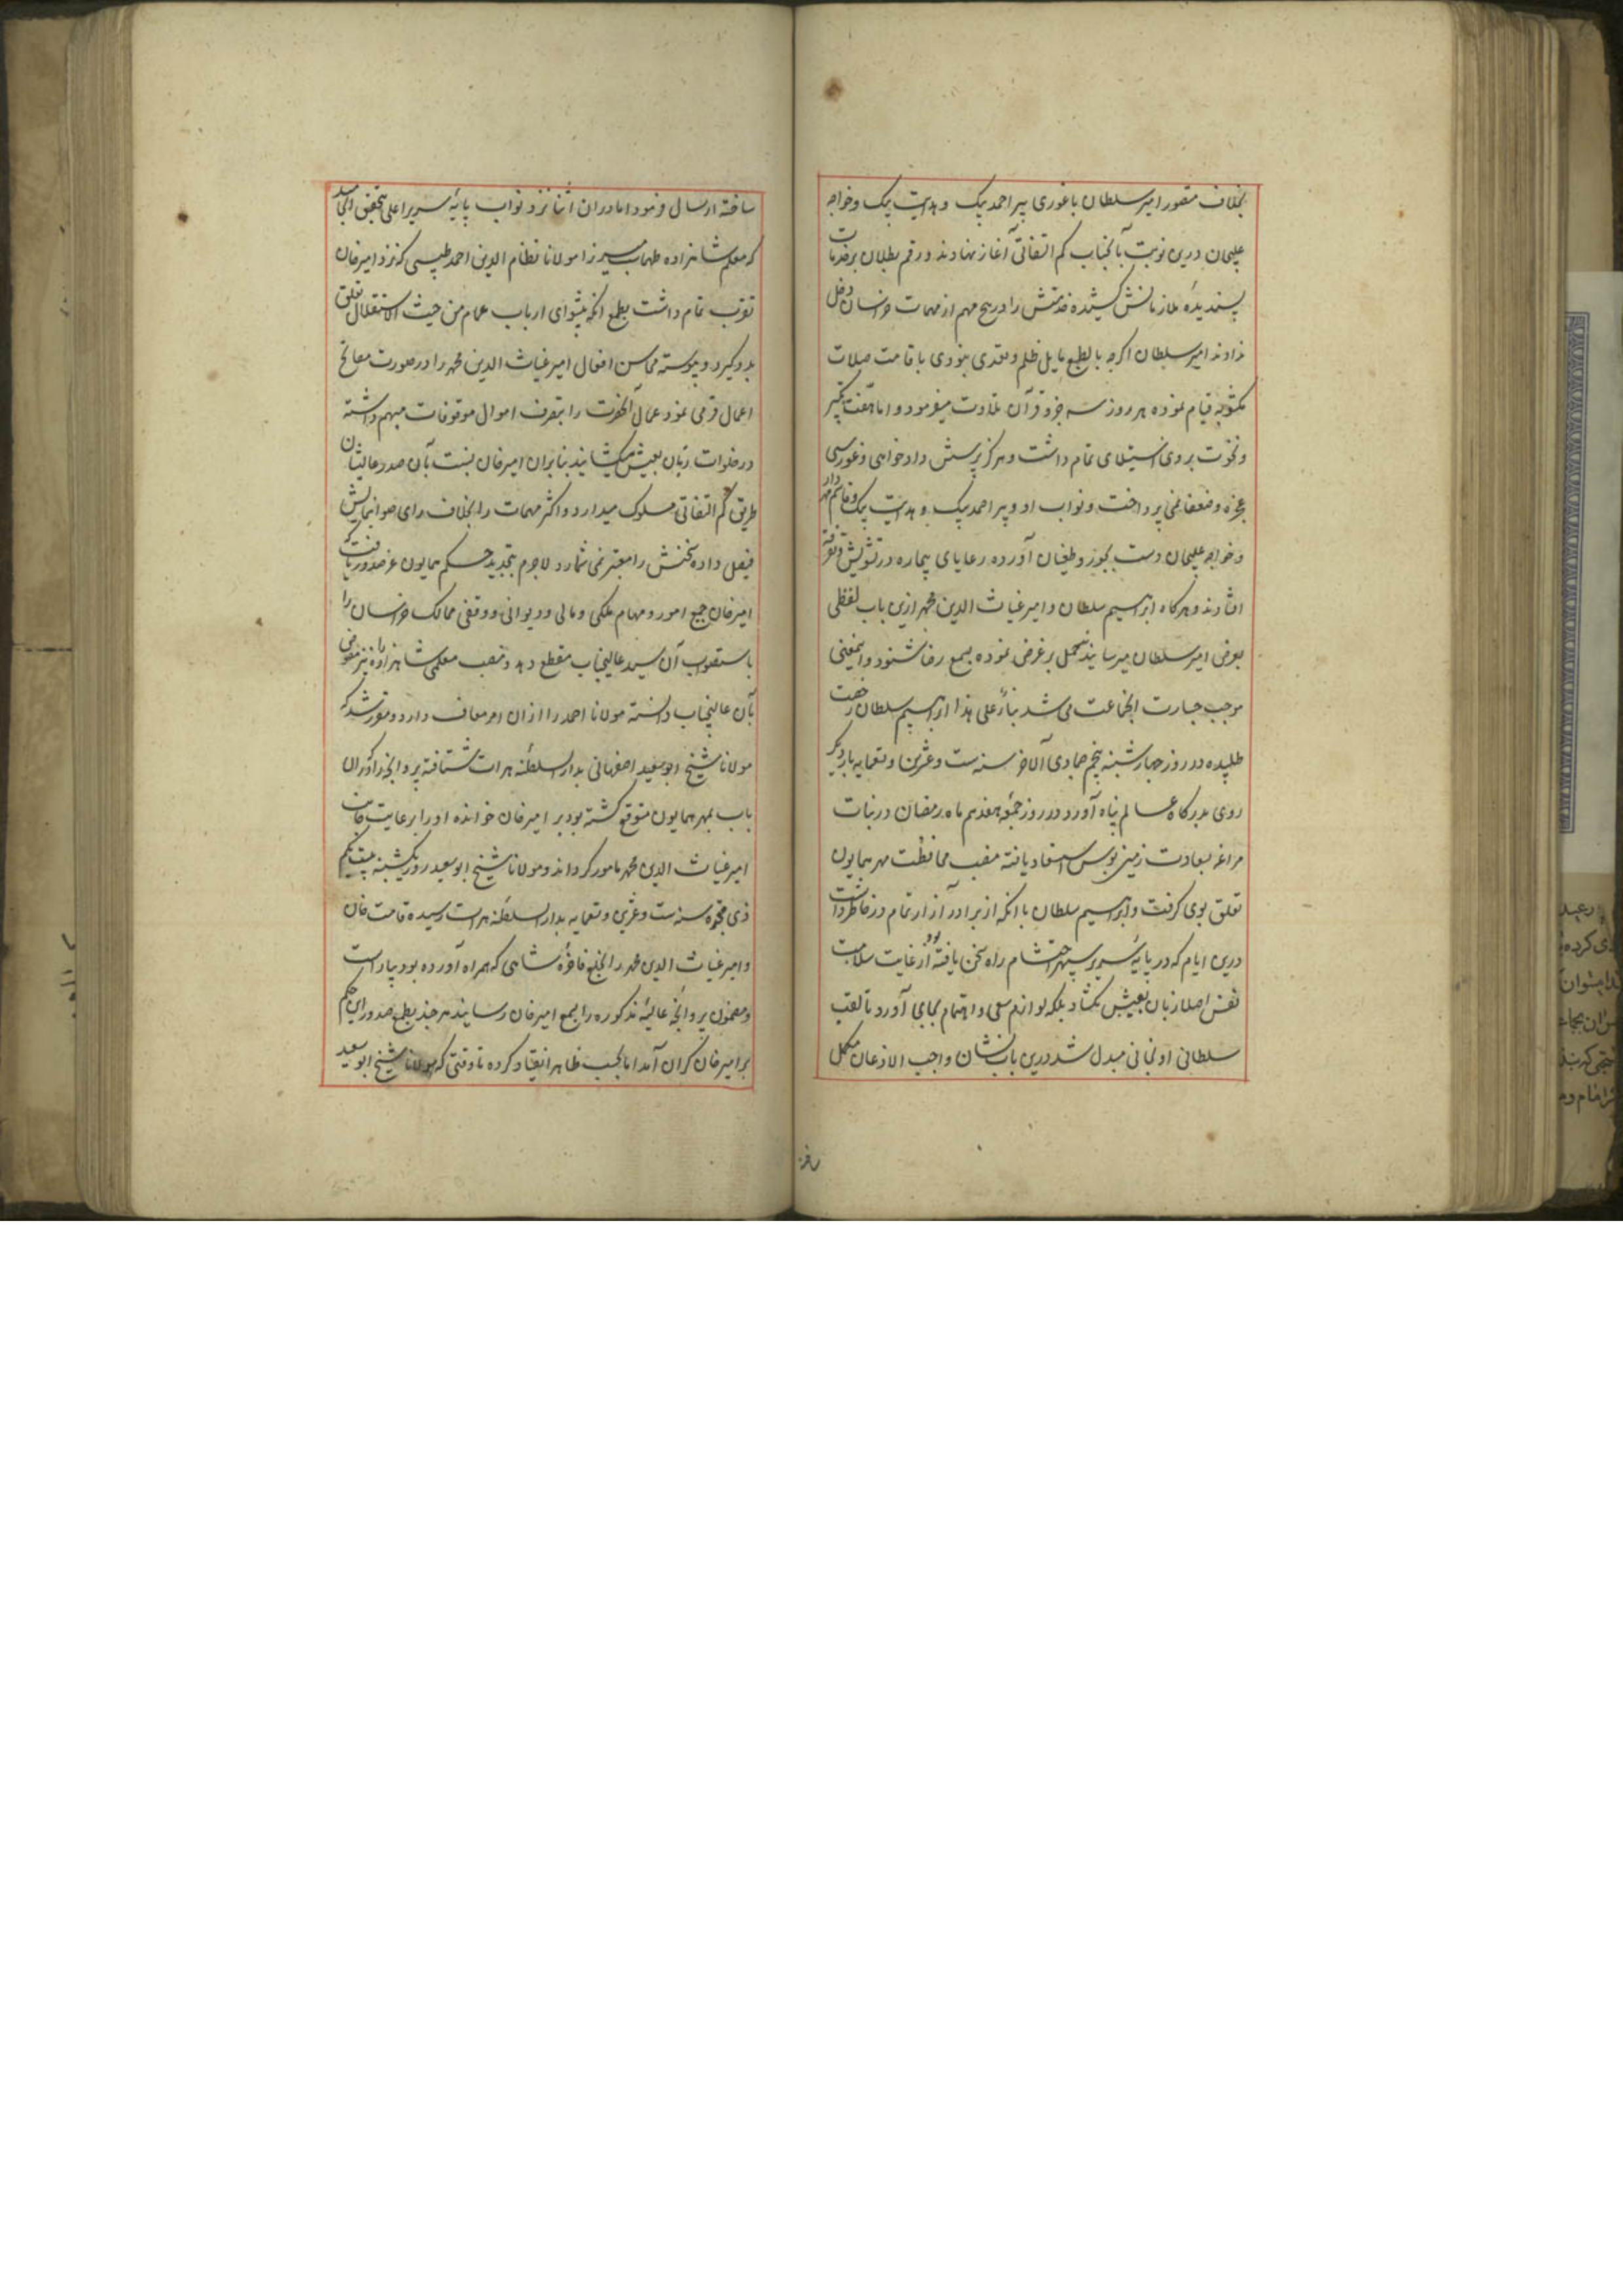 بخلاف متصور امیر سلطان باغوای پیر احمد بیک و هدایت بیک و خواجه
درین نوبت بآنجناب کم التفاتی آغاز نهادند و رقم بطلان بر خدمات
پسندیدهٔ ملازمانش کشیده خدمتش را در هیچ مهم از مهمات خراسان دخل
ندادند امیر سلطان اگرچه بالطبع مایل ظلم و تعدی نبودی باقامت صلات
مکتوبه قیام نموده هر روز سه جزو قرآن تلاوت میفرمود و اما تکبر
و نخوت بروی استیلای تمام داشت و هرگز بپرسش دادخواهی و غوررسی
عجزه و ضعفا نمی پرداخت و نواب او پیر احمد بیک و هدایت بیک و قاسم مهردار
و خواجه دست بجور و طغیان آورده رعایای بیچاره در تشویش و تفرقه
افتادند و هرگاه ابراهیم سلطان و امیر غیاث الدین محمد ازین باب لفظی
بعرض امیر سلطان میرسانیدند حمل بر غرض نموده بسمع رضا نشنود و اینمعنی
موجب جسارت آنجماعت می شد بناءً علی هذا ابراهیم سلطان رخصت
طلبیده در روز چهارشنبه پنجم جمادی الاخر سنه ست و عشرین و تسعمایه بار دیگر
روی بدرگاه عالم پناه آورد و در روز جمعه هفدهم ماه رمضان در نبات
مراغه بسعادت زمین بوس استسعاد یافته منصب محافظت مهر همایون
تعلق بوی گرفت و ابراهیم سلطان با آنکه از برادر آزار تمام در خاطر داشت
درین ایام که در پایهٔ سریر سپهر احتشام راه سخن یافته بود از غایت سلامت
نفس اصلا زبان بعیبش نگشاد بلکه لوازم سعی و اهتمام بجای آورد تا لقب
سلطانی او بخانی مبدل شد و درین باب نشان واجب الاذعان مکمل
ساخته ارسال فرمود اما در ان اثنا نزد نواب پایهٔ سریر اعلی بتحقیق انجامید
که معلم شاهزاده طهماسب میرزا مولانا نظام الدین احمد طبسی که نزد امیرخان
تقرب تمام داشت بطمع آنکه پیشوای ارباب عمایم من حیث الاستقلال تعلق
بدو گیرد و پیوسته محاسن افعال امیر غیاث الدین محمد را در صورت مقابح
اعمال فرا می نمود و عمال آنحضرت را بتصرف اموال موقوفات متهم داشته
در خلوات زبان بعیبش میگشاید بنابران امیرخان نسبت بآن صدر عالیشان
طریق کم التفاتی مسلوک میدارد و اکثر مهمات را بخلاف رای صوابنمایش
فیصل داده سخنش را معتبر نمی شمارد لاجرم بتجدید حکم همایون عز صدور یافت که
امیرخان جمیع امور و مهام ملکی و مالی و دیوانی و وقفی ممالک خراسان را
باستصواب آن سید عالیجناب مقطع دهد و منصب معلمی شاهزاده را نیز مفوض
بآن عالیجناب دانسته مولانا احمد را از ان امر معاف دارد و مقرر شد که
مولانا شیخ ابوسعید اصفهانی بدار السلطنهٔ هرات شتافته پروانجه را که در ان
باب بمهر همایون موقع گشته بود بر امیرخان خوانده او را برعایت جانب
امیر غیاث الدین محمد مامور گرداند و مولانا شیخ ابوسعید روز یکشنبه بیست و یکم
ذی حجه سنه ست و عشرین و تسعمایه بدار السلطنه هرات رسیده قامت خان
و امیر غیاث الدین محمد را بخلع فاخرهٔ شاهی که همراه آورده بود بیاراست
و مضمون پروانجهٔ عالیهٔ مذکوره را بسمع امیرخان رسانید هر چند بطبع صدور این حکم
بر امیرخان گران آمد اما بحسب ظاهر انقیاد کرده تا وقتی که مولانا شیخ ابوسعید